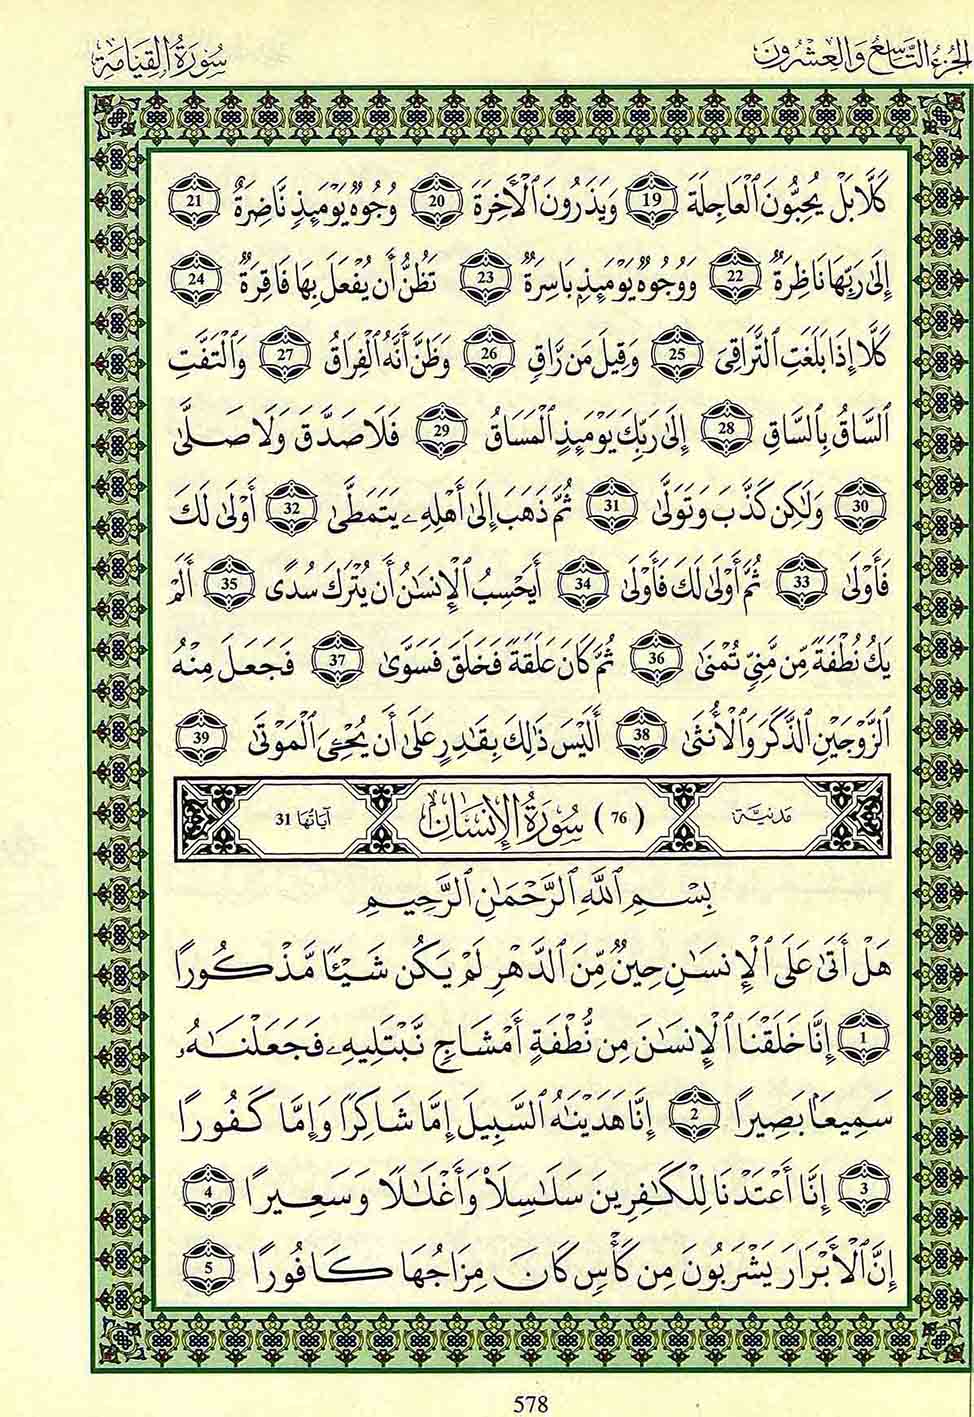 الجزء التاسع والعشرون
سورة القيامة
كَلَّا بَلْ يُحِبُّونَ ٱلْعَاجِلَةَ 19 وَيَذَرُونَ ٱلْأَخِرَةَ 20 وُجُوهٌ يَوْمَئِذٍ نَّاضِرَةٌ 21
إِلَىٰ رَبِّهَا نَاظِرَةٌ 22 وَوُجُوهٌ يَوْمَئِذٍۭ بَاسِرَةٌ 23 تَظُنُّ أَن يُفْعَلَ بِهَا فَاقِرَةٌ 24
كَلَّا إِذَا بَلَغَتِ ٱلتَّرَاقِىَ 25 وَقِيلَ مَن رَّاقٍ 26 وَظَنَّ أَنَّهُ ٱلْفِرَاقُ 27 وَٱلْتَفَّتِ
ٱلسَّاقُ بِٱلسَّاقِ 28 إِلَىٰ رَبِّكَ يَوْمَئِذٍ ٱلْمَسَاقُ 29 فَلَا صَدَّقَ وَلَا صَلَّىٰ
30 وَلَٰكِن كَذَّبَ وَتَوَلَّىٰ 31 ثُمَّ ذَهَبَ إِلَىٰ أَهْلِهِۦ يَتَمَطَّىٰ 32 أَوْلَىٰ لَكَ
فَأَوْلَىٰ 33 ثُمَّ أَوْلَىٰ لَكَ فَأَوْلَىٰ 34 أَيَحْسِبُ ٱلْإِنسَٰنُ أَن يُتْرَكَ سُدًى 35 أَلَمْ
يَكُ نُطْفَةً مِّن مَّنِىٍّ تُمْنَىٰ 36 ثُمَّ كَانَ عَلَقَةً فَخَلَقَ فَسَوَّىٰ 37 فَجَعَلَ مِنْهُ
ٱلزَّوْجَيْنِ ٱلذَّكَرَ وَٱلْأُنثَىٰ 38 أَلَيْسَ ذَٰلِكَ بِقَٰدِرٍ عَلَىٰ أَن يُحْـِۧىَ ٱلْمَوْتَىٰ 39
مدنية (76) سورة الإنسان آياتها 31
بِسْمِ ٱللَّهِ ٱلرَّحْمَٰنِ ٱلرَّحِيمِ
هَلْ أَتَىٰ عَلَى ٱلْإِنسَٰنِ حِينٌ مِّنَ ٱلدَّهْرِ لَمْ يَكُن شَيْـًٔا مَّذْكُورًا
1 إِنَّا خَلَقْنَا ٱلْإِنسَٰنَ مِن نُّطْفَةٍ أَمْشَاجٍ نَّبْتَلِيهِ فَجَعَلْنَٰهُ
سَمِيعًۢا بَصِيرًا 2 إِنَّا هَدَيْنَٰهُ ٱلسَّبِيلَ إِمَّا شَاكِرًا وَإِمَّا كَفُورًا
3 إِنَّا أَعْتَدْنَا لِلْكَٰفِرِينَ سَلَٰسِلَا۟ وَأَغْلَٰلًا وَسَعِيرًا 4
إِنَّ ٱلْأَبْرَارَ يَشْرَبُونَ مِن كَأْسٍ كَانَ مِزَاجُهَا كَافُورًا 5
578